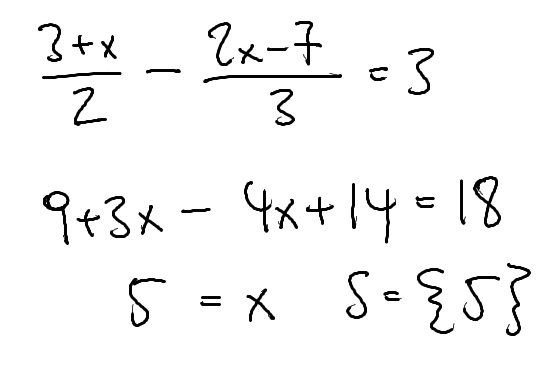 (3+x)/2 − (2x−7)/3 = 3
9+3x − 4x+14 = 18
5 = x S={5}